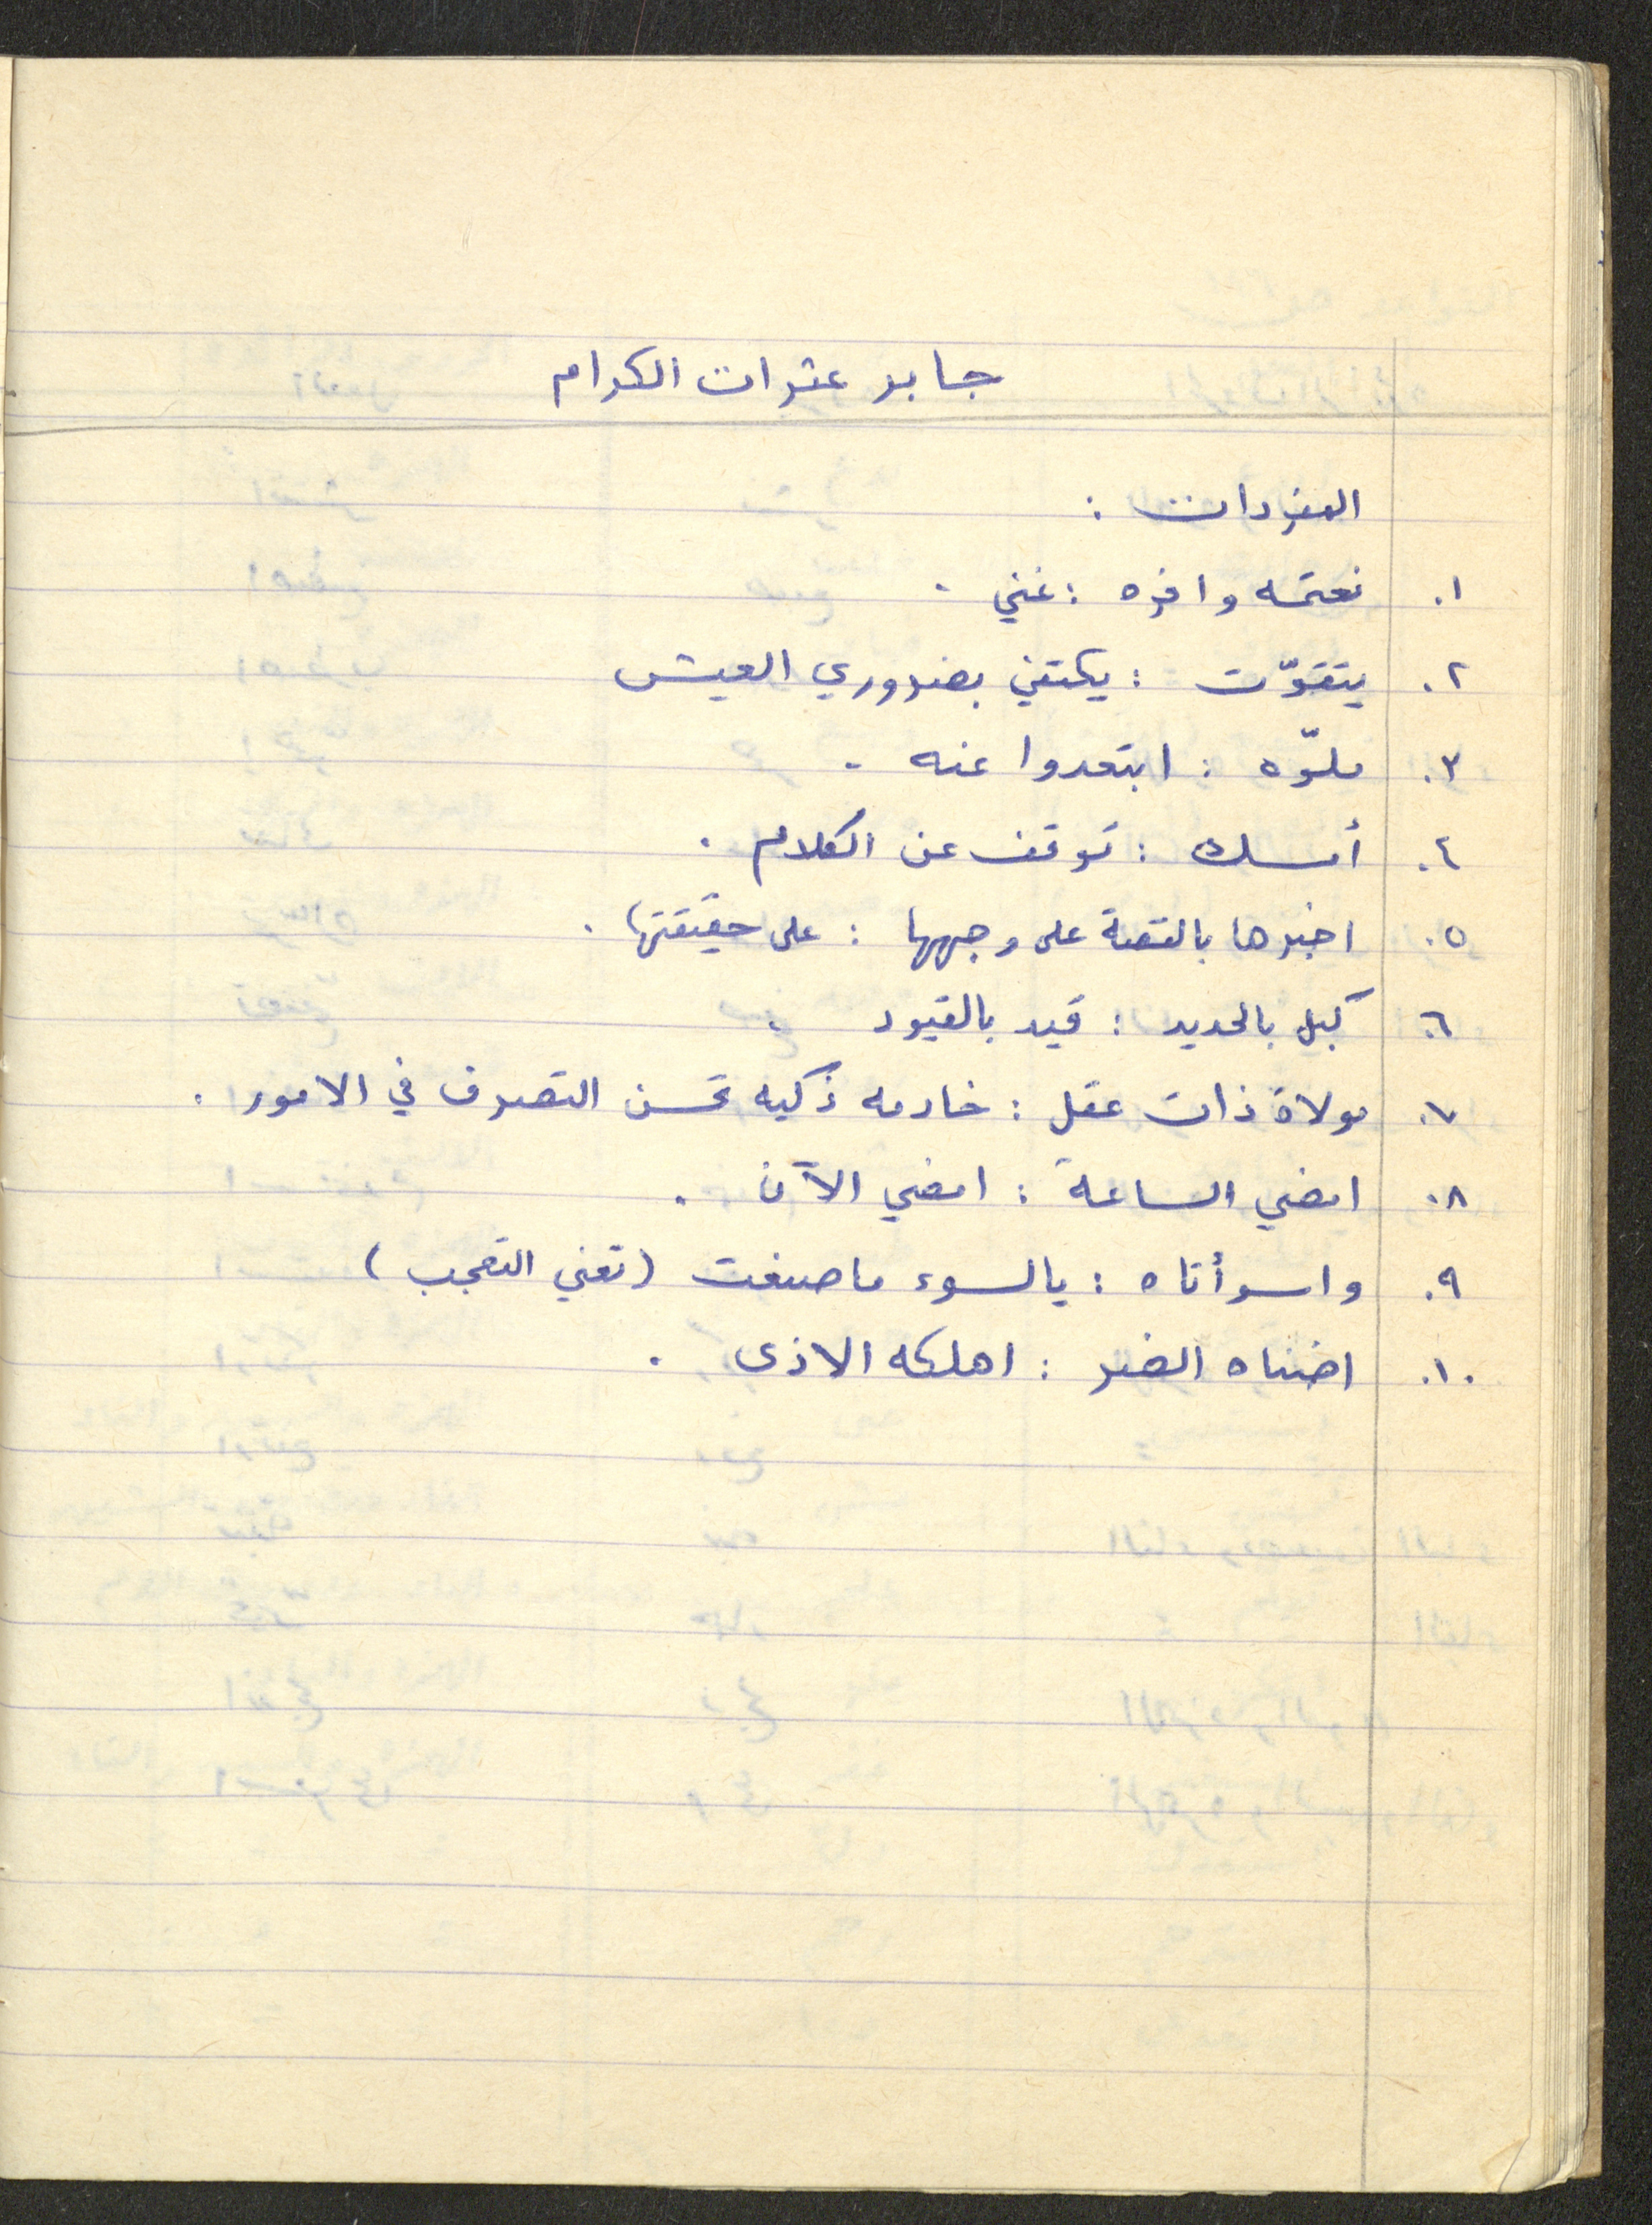 جابر عثرات الكرام
المفردات :
١. نعمته وافره : غني .
٢. يتقوّت : يكتفي بضروري العيش
٣. ملّوه : ابتعدوا عنه .
٤. أمسك : توقف عن الكلام .
٥. اخبرها بالقصة على وجهها : على حقيقتها .
٦. كبل بالحديد : قيد بالقيود .
٧. مولاة ذات عقل : خادمه ذكيه تحسن التصرف في الامور .
٨. امضي الساعة : امضي الآن .
٩. واسوأتاه : يالسوء ماصنعت (تعني التعجب)
١٠. اضناه الضر : اهلكه الاذى .